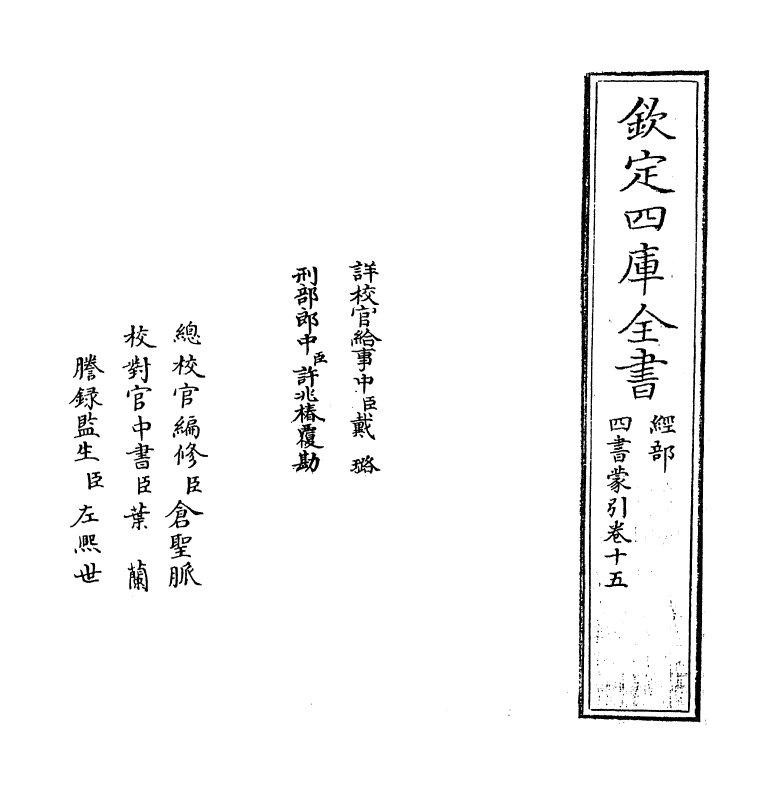 欽定四庫全書
經部
四書蒙引卷十五
詳校官給事中臣戴璐
刑部郎中臣許兆椿覆勘
總校官編修臣倉聖脈
校對官中書臣葉蘭
謄録監生臣左熈世